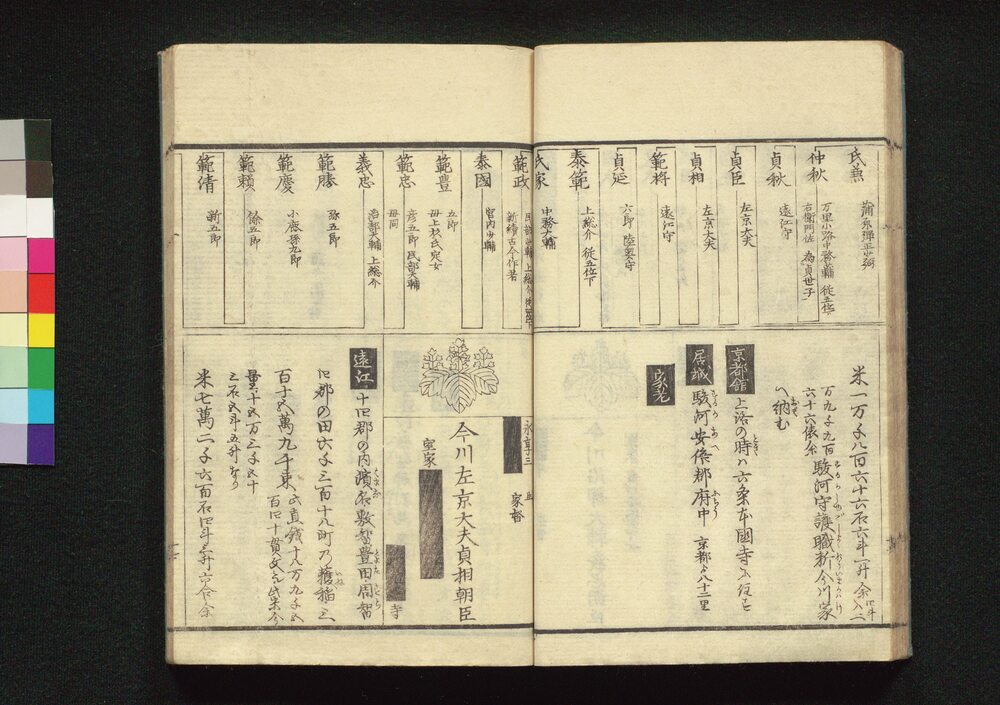 氏兼
蒲原弾正少弼
仲秋
万里小路中務大輔 従五位下
右衛門佐 為貞世子
貞秋
遠江守
貞臣
左京大夫
貞相
左京大夫
範将
遠江守
貞延
六郎 陸奥守
泰範
上総介 従五位下
氏家
中務大輔
米一万千八百六十六石六斗一升余
万九千九百
六十六俵余
駿河守護職料今川家
へ納む
京都館
上洛の時ハ六条本國寺に住す
居城
駿河安倍郡府中 京都ゟ八十二里
家老
範政
民部大輔 上総介 従四位下
新続古今作者
泰國
宮内少輔
範豊
五郎
母上杉氏定女
範忠
彦五郎 民部大輔
母同
義忠
治部大輔 上総介
範勝
弥五郎
範慶
小鹿孫九郎
範頼
範清
新五郎
永享三
家督
今川左京大夫貞相朝臣
室家
寺
遠江
十四郡の内濱名敷智豊田周智
四郡の田六千三百十八町乃穫稲三
百十五萬九千束
此直銭十八万九千五
百四十貫文
三石五斗五升なり
米七萬二千六百石四斗三升六合余